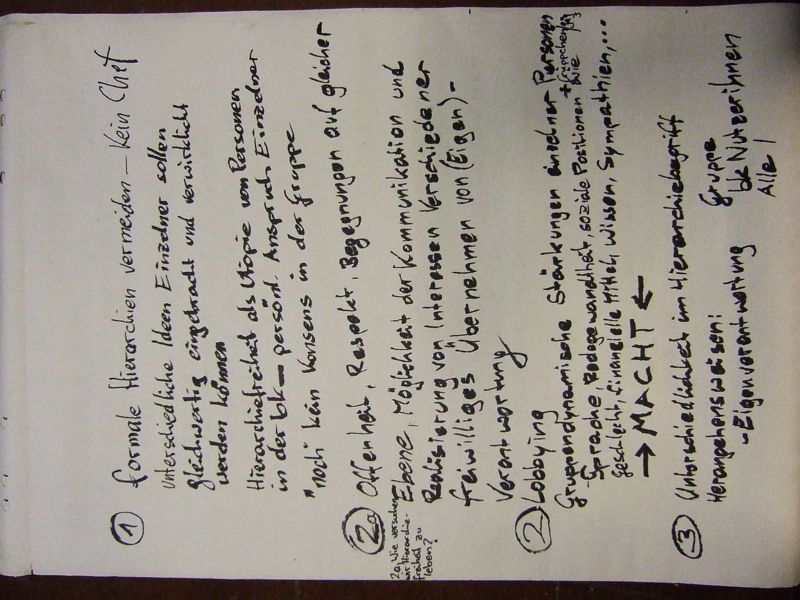 ① formale Hierarchien vermeiden – Kein Chef
Unterschiedliche Ideen Einzelner sollen
gleichwertig eingebracht und verwirklicht
werden können
Hierarchiefreiheit als Utopie von Personen
in der bk – persönl. Anspruch Einzelner
"noch" kein Konsens in der Gruppe
②a Offenheit, Respekt, Begegnungen auf gleicher
Ebene, Möglichkeit der Kommunikation und
Realisierung von Interessen Verschiedener
freiwilliges Übernehmen von (Eigen)-
Verantwortung
2a Wie versuchen
wir Hierarchie-
freiheit zu
leben?
② Lobbying
Gruppendynamische Stärkungen einzelner Personen
+ Grüppchen
- Sprache, Redegewandtheit, soziale Positionen wie
Geschlecht, finanzielle Mittel, Wissen, Sympathien,...
→ MACHT ←
③ Unterschiedlichkeit im Hierarchiebegriff
Herangehensweisen: Gruppe
- Eigenverantwortung bk NutzerInnen
Alle!